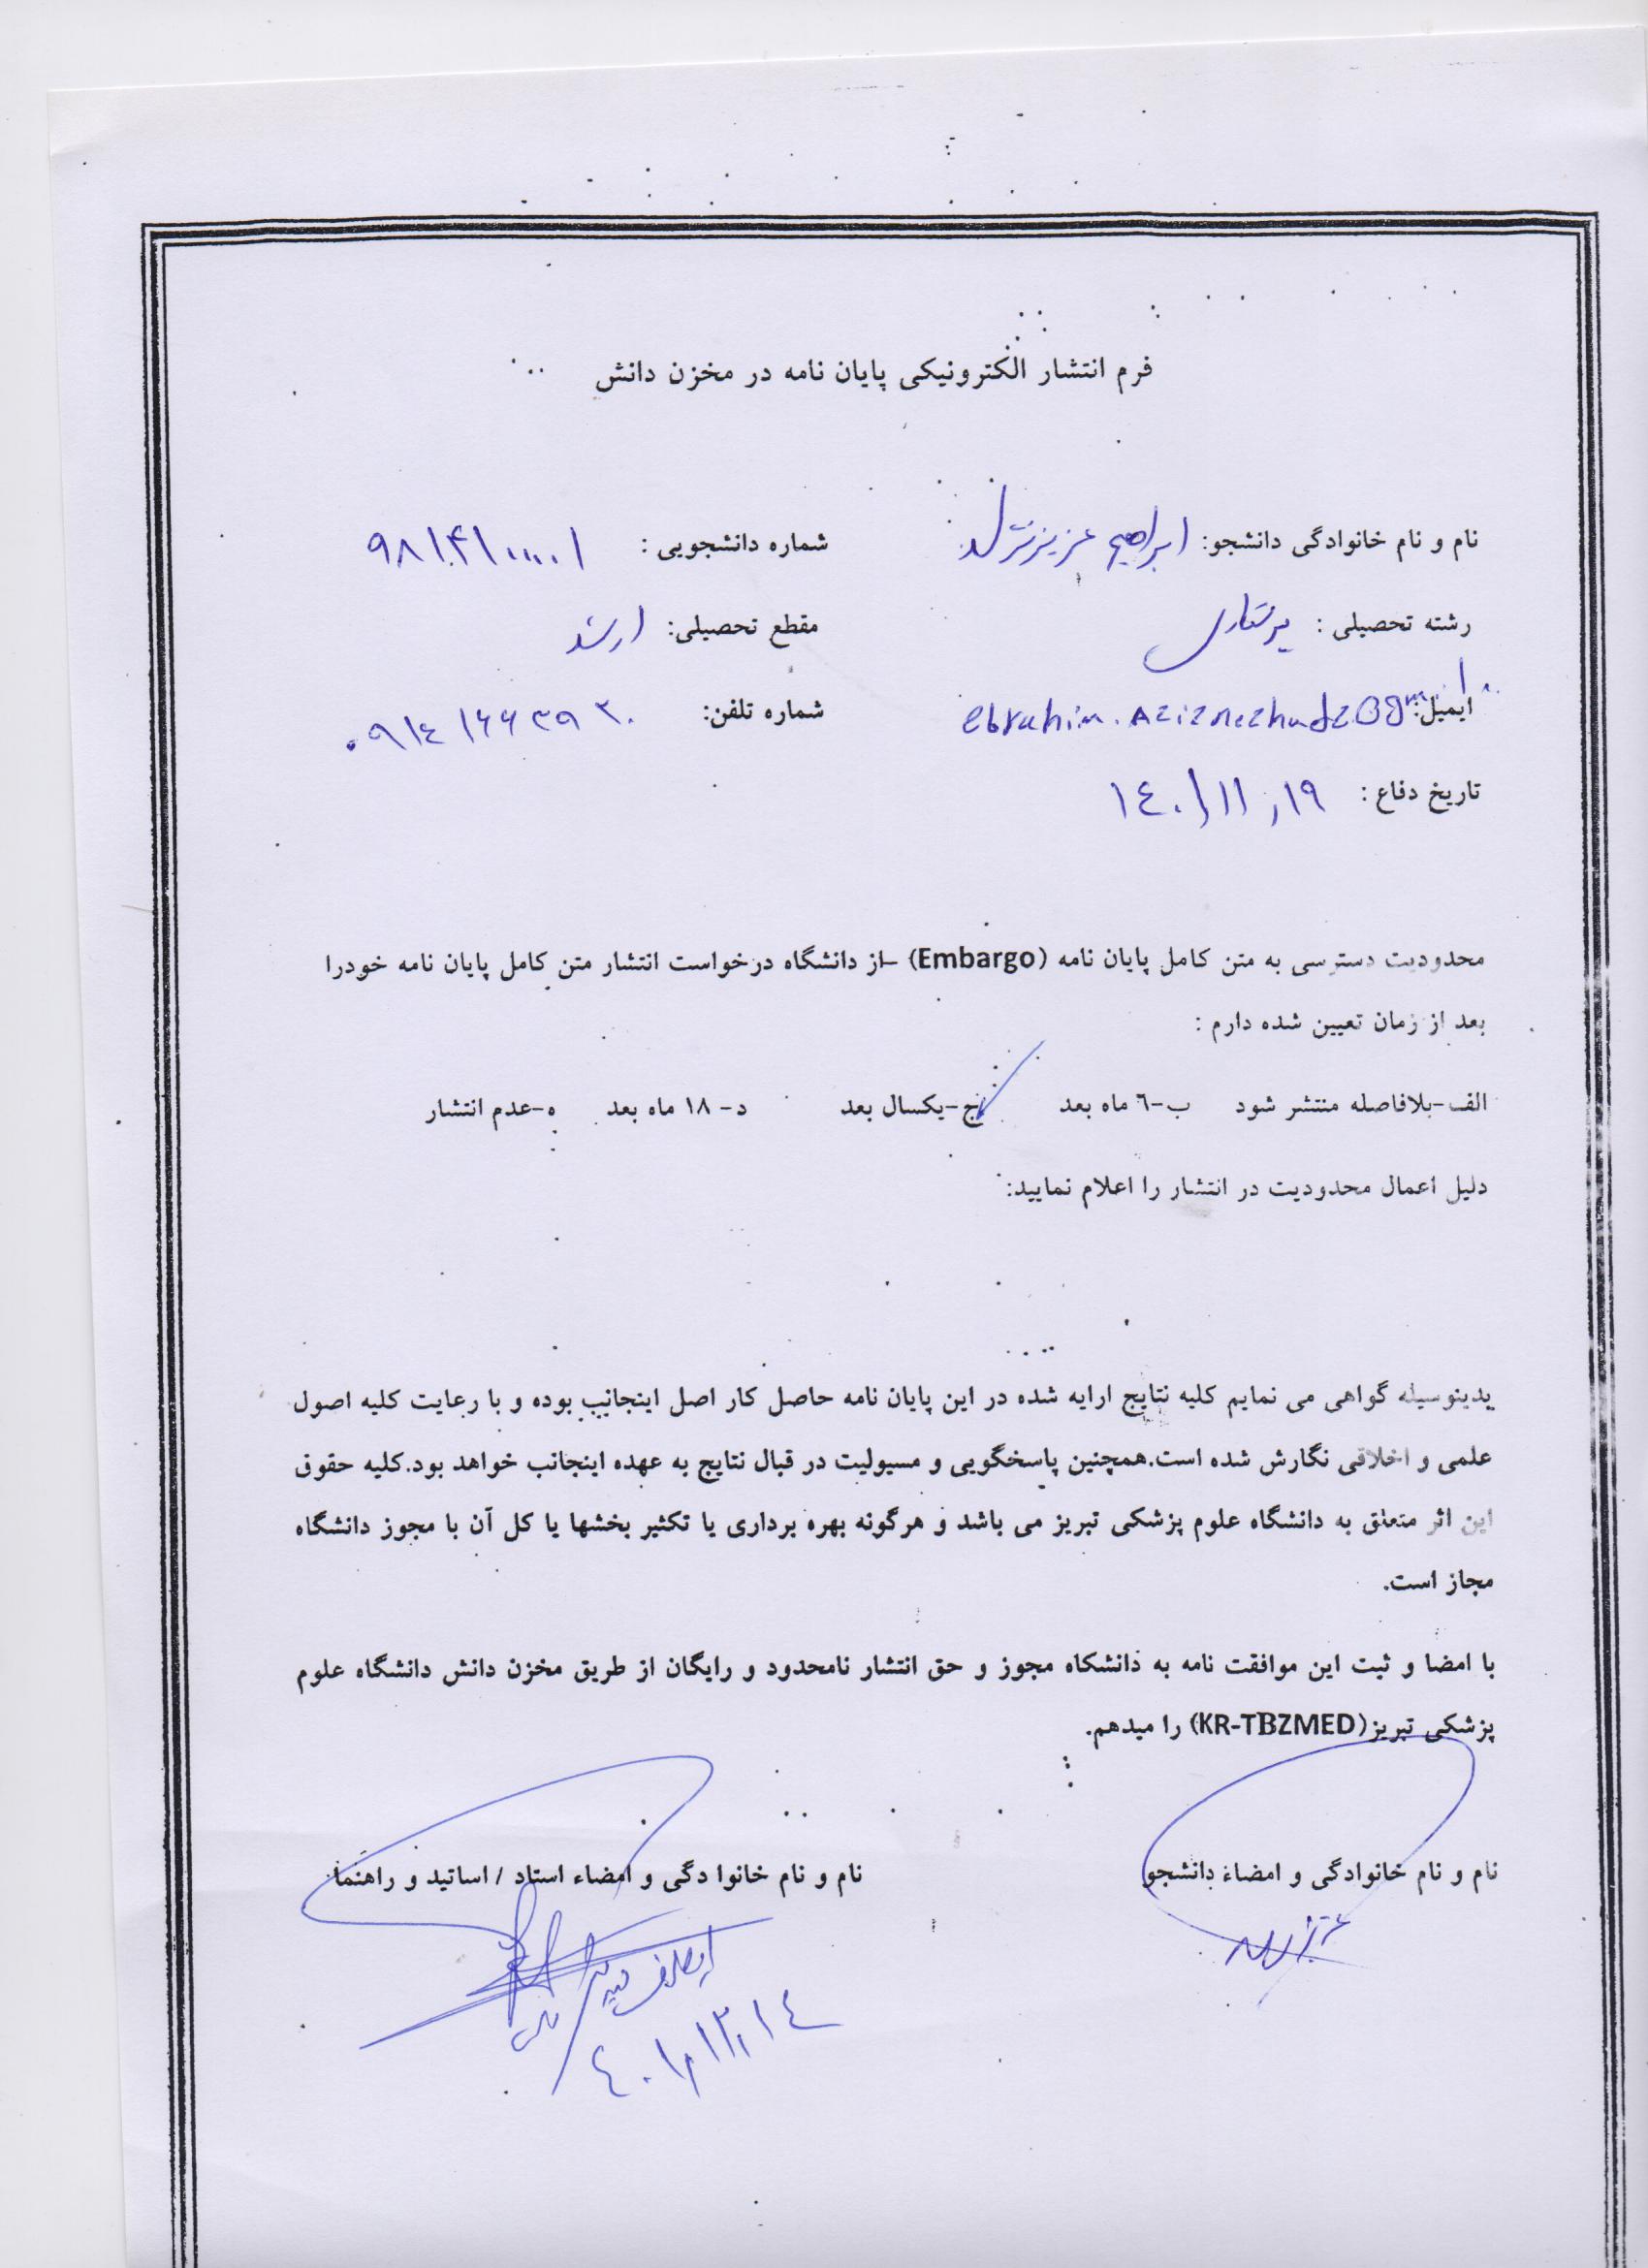 فرم انتشار الکترونیکی پایان نامه در مخزن دانش
نام و نام خانوادگی دانشجو: ابراهیم عزیزنژاد شماره دانشجویی :
رشته تحصیلی : پرستاری مقطع تحصیلی: ارشد
ایمیل: شماره تلفن: ۰۹۱٤۱۶۶۳۹۲۰
تاریخ دفاع : ۱٤۰۱/۱۱/۱۹
محدودیت دسترسی به متن کامل پایان نامه (Embargo) –از دانشگاه درخواست انتشار متن کامل پایان نامه خودرا
بعد از زمان تعیین شده دارم :
الف-بلافاصله منتشر شود ب-٦ ماه بعد ج-یکسال بعد د- ۱۸ ماه بعد ه-عدم انتشار
دلیل اعمال محدودیت در انتشار را اعلام نمایید:
بدینوسیله گواهی می نمایم کلیه نتایج ارایه شده در این پایان نامه حاصل کار اصل اینجانب بوده و با رعایت کلیه اصول
علمی و اخلاقی نگارش شده است.همچنین پاسخگویی و مسیولیت در قبال نتایج به عهده اینجانب خواهد بود.کلیه حقوق
این اثر متعلق به دانشگاه علوم پزشکی تبریز می باشد و هرگونه بهره برداری یا تکثیر بخشها یا کل آن با مجوز دانشگاه
مجاز است.
با امضا و ثبت این موافقت نامه به دانشکاه مجوز و حق انتشار نامحدود و رایگان از طریق مخزن دانش دانشگاه علوم
پزشکی تبریز(KR-TBZMED) را میدهم.
نام و نام خانوادگی و امضاء دانشجو نام و نام خانوا دگی و امضاء استاد / اساتید و راهنما
٤۰۱/۱۲/۱٤